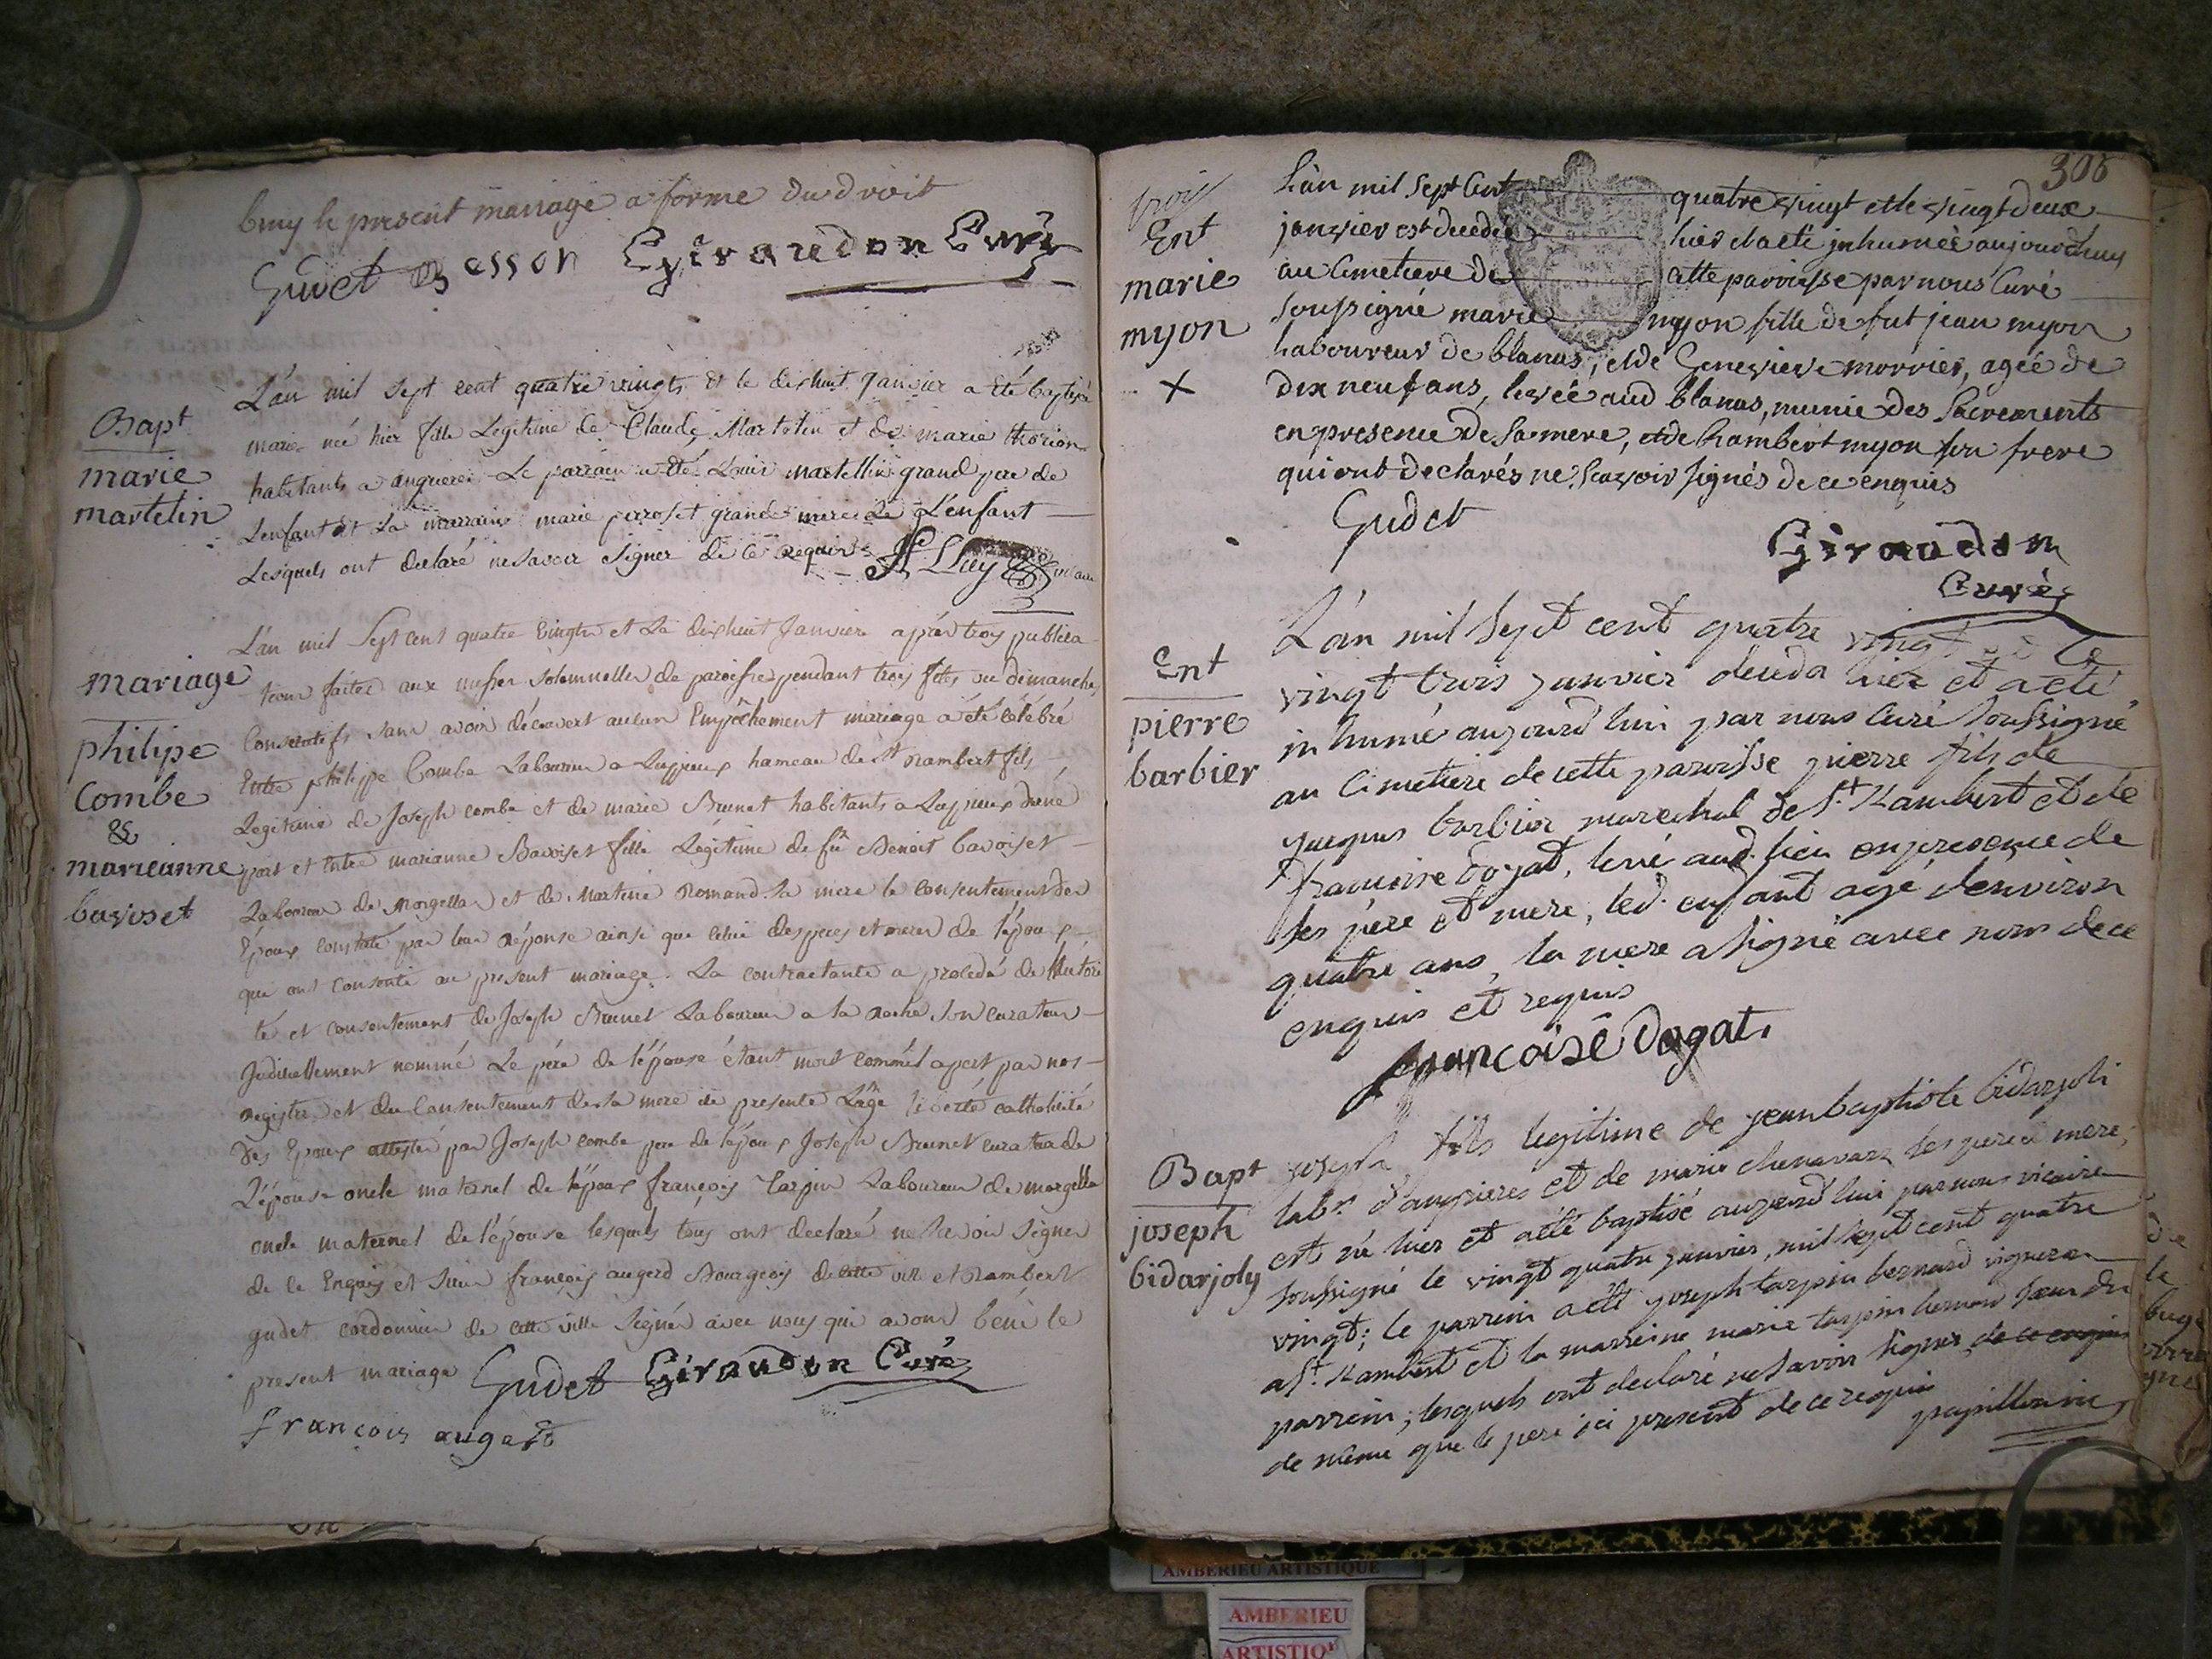 beny le present mariage a forme du droit
Gudet Besson Giraudon Curé
Bapt
marie
martelin
L'án mil sept cent quatre vingts et le dixhuit Janvier a été baptisée
marie née hier fille Légitime de Claude Martelin et de marie thorion
habitants a angrieres Le parrain a été Louis martellin grand pere de
L'enfant et La marraine marie perroset grande mere de L'enfant
Lesquels ont declaré ne savoir signer de ce requis
mariage
philipe
Combe
&
marieanne
bavoset
L'an mil Sept cent quatre vingts et Le dixhuit Janvier aprés trois publica
tions faites aux messes solemnelles de paroisse pendant trois fêtes ou dimanches
Consecutifs sans avoir découvert aucun Empêchement mariage a été célébré
Entre philippe Combe Laboureur a Lupieux hameau de St rambert fils
Légitime de Joseph combe et de marie Brunet habitants a Lupieux d'une
part et Entre marianne Bavoiset fille Légitime de fû Benoit bavoiset
Laboureur de Morgellas et de Martine Romand sa mere le consentement des
Époux constaté par leur réponse ainsi que celui des peres et meres de l'époux
qui ont consenti au present mariage. La contractante a procedé de l'Autori
té et consentement de Joseph Brunet Laboureur a la roche son curateur
Judiciellement nommé Le pére de l'épouse étant mort comm'il apert par nos
registres et du Consentement de sa mere ici presente L'âge liberté catholicité
des Epoux attestés par Joseph combe pere de l'époux Joseph Brunet curateur de
L'épouse oncle maternel de l'époux françois Tarpin Laboureur de morgella
oncle maternel de l'épouse lesquels tous ont declaré ne savoir signer
de ce Enquis et Sieur françois augerd Bourgeois de cette ville et rambert
gudet cordonnier de cette ville Signés avec nous qui avons béni le
present mariage Gudet Giraudon Curé
françois augerd
306
trois
Ent
marie
myon
X
L'án mil sept Cent quatre vingt et le vingt deux
janvier est decedée hier et a été inhumée aujourdhuy
au Cimetiere de cette parroisse par nous Curé
soussigné marie myon fille de fut jean myon
laboureur de blanas, et de Geneviève morrier, agée de
dix neuf ans, levée aud blanas, munie des Sacrements
en presence de sa mere, et de Rambert myon son frere
qui ont declarés ne Scavoir signés de ce enquis
Gudet
Giraudon
Curé
Ent
pierre
barbier
L'án mil sept cent quatre vingt et le
vingt trois janvier deceda hier et a été
inhumé aujourd'hui par nous Curé soussigné
au Cimetiere de cette paroisse pierre fils de
jacques barbier marechal de St. Rambert et de
francoise dogat, levé aud. lieu en presence de
ses père et mere, led. enfant agé d'environ
quatre ans, la mere a signé avec nous de ce
enquis et requis
francoise dogat.
Bapt
joseph
bidarjoly
joseph fils legitime de jean baptiste bidarjoli
labr. d'angrieres et de marie chenavas ses pere et mere,
est né hier et a été baptisé aujourd'hui par nous vicaire
soussigné le vingt quatre janvier, mil sept cent quatre
vingt; le parrein a été joseph tarpin bernard vigneron
a St. Rambert et la marreine marie tarpin bernard soeur du
parrein; lesquels ont declaré ne savoir signer de ce enquis
de même que le pere ici present de ce requis papillon vic
AMBERIEU ARTISTIQUE
AMBERIEU
ARTISTIQ